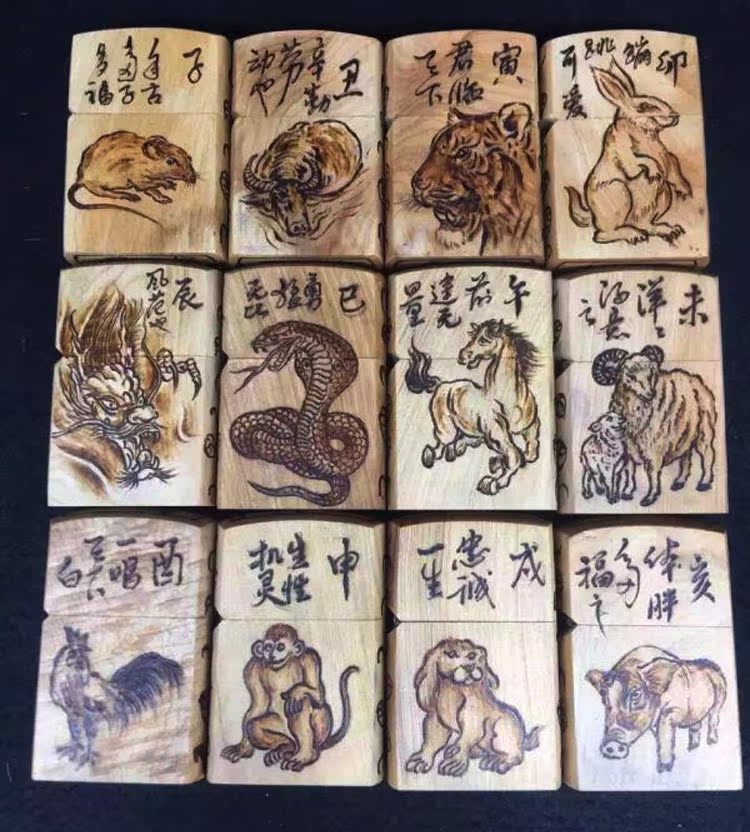 子
吉
多子
多福
丑
辛勤
劳
动也
寅
君临
天下
卯
蹦
跳
可爱
辰
风范也
巳
勇
猛
午
前
量
未
洋洋
得意
酉
一唱
白
申
生性
机灵
戌
忠诚
一生
亥
体胖
多
福